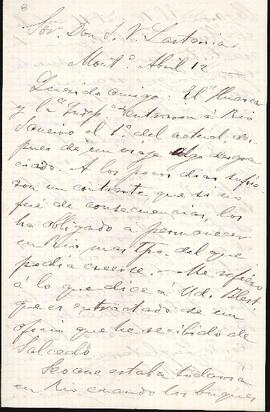 Sor. Don J. V. Lastarria
Mont.o Abril 12
Querido amigo: El "Huascar
y la "Indep.a entraron á Rio
Janeiro el 1o del actual des-
pues de un viaje algo desgra-
ciado. A los pocos dias sufrie
ron un contraste, que si no
fué de consecuencias, los
ha obligado á permanecer
en Rio mas tpo. del que
podia creerse. Me refiero
á lo que dice á Ud. Blest,
que es extractado de un
oficio que he recibido de
Salcedo.
Seoane estaba todavia
en Rio cuando los buques